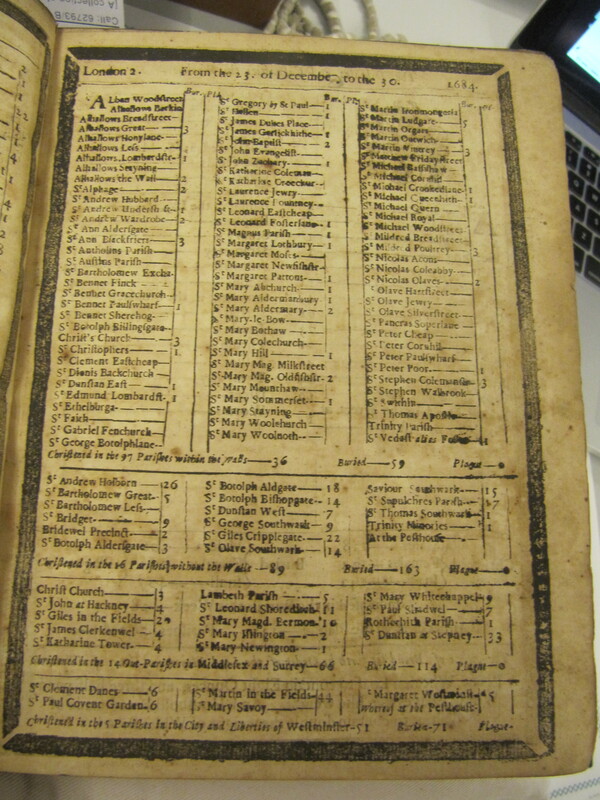 Call: 62793/B
London 2. From the 23. of December, to the 30. 1684.
Bur. Pla.
Alban Woodstreet
Alhallows Barkin
Alhallows Breadstreet
Alhallows Great 3
Alhallows Honylane
Alhallows Less
Alhallows Lombardstr 1
Alhallows Stayning
Alhallows the Wall 2
St Alphage 2
St Andrew Hubbard
St Andrew Undersh
St Andrew Wardrobe 2
St Ann Aldersgate
St Ann Blackfriers 3
St Antholins Parish
St Austins Parish
St Bartholomew Excha
St Bennet Finck
St Bennet Gracechurch
St Bennet Paulswharf 1
St Bennet Sherehog
St Botolph Billingsgate
Christ's Church 3
St Christophers 1
St Clement Eastcheap
St Dionis Backchurch
St Dunstan East 1
St Edmund Lombardst 1
St Ethelburga
St Faith
St Gabriel Fenchurch
St George Botolphlane
Bur. Pl
St Gregory by St Paul 1
St Hellen 1
St James Dukes Place
St James Garlickhithe 1
St John Baptist 2
St John Evangelist
St John Zachary 1
St Katharine Coleman
St Katharine Creechur
St Laurence Jewry
St Laurence Pountney
St Leonard Eastcheap
St Leonard Fosterlane 1
St Magnus Parish 1
St Margaret Lothbury 1
St Margaret Moses
St Margaret Newfishstr
St Margaret Pattons 1
St Mary Abchurch 1
St Mary Aldermanbury 1
St Mary Aldermary 2
St Mary-le-Bow
St Mary Bothaw
St Mary Colechurch
St Mary Hill 1
St Mary Mag. Milkstreet
St Mary Mag. Oldfishstr 2
St Mary Mounthaw
St Mary Sommerset 1
St Mary Stayning
St Mary Woolchurch
St Mary Woolnoth
Bur.
St Martin Ironmongerla
St Martin Ludgate 5
St Martin Orgars
St Martin Outwich
St Martin Vintrey 3
St Matthew Fridaystreet
St Michael Bassishaw
St Michael Cornhil
St Michael Crookedlane 1
St Michael Queenhith 1
St Michael Quern
St Michael Royal
St Michael Woodstreet
St Mildred Breadstreet
St Mildred Poultrey 3
St Nicolas Acons
St Nicolas Coleabby
St Nicolas Olaves 2
St Olave Hartstreet
St Olave Jewry
St Olave Silverstreet
St Pancras Soperlane
St Peter Cheap
St Peter Cornhil
St Peter Paulswharf
St Peter Poor 1
St Stephen Colemanstr 3
St Stephen Walbrook
St Swithin
St Thomas Apostle
Trinity Parish
St Vedast alias
Christened in the 97 Parishes within the Walls 36 Buried 59 Plague 0
St Andrew Holborn 26
St Bartholomew Great 5
St Bartholomew Less
St Bridget 9
Bridewel Precinct 2
St Botolph Aldersgate 3
St Botolph Aldgate 18
St Botolph Bishopgate 14
St Dunstan West 7
St George Southwark 9
St Giles Cripplegate 22
St Olave Southwark 14
Saviour Southwark 15
St Sepulchres Parish 17
St Thomas Southwark 1
Trinity Minories 1
At the Pesthouse
Christened in the 16 Parishes without the Walls 89 Buried 163 Plague 0
Christ Church 3
St John at Hackney 4
St Giles in the Fields 29
St James Clerkenwel 4
St Katharine Tower 4
Lambeth Parish 5
St Leonard Shoreditch 11
St Mary Magd. Bermon. 10
St Mary Islington 2
St Mary Newington 1
St Mary Whitechappel 9
St Paul Shadwel 7
Rothorhith Parish 1
St Dunstan at Stepney 33
Christened in the 14 Out-Parishes in Middlesex and Surrey 66 Buried 114 Plague 0
St Clement Danes 6
St Paul Covent Garden 6
St Martin in the Fields 44
St Mary Savoy
St Margaret Westminst
whereof at the Pesthouse
Christened in the 5 Parishes in the City and Liberties of Westminster 51 Buried 71 Plague